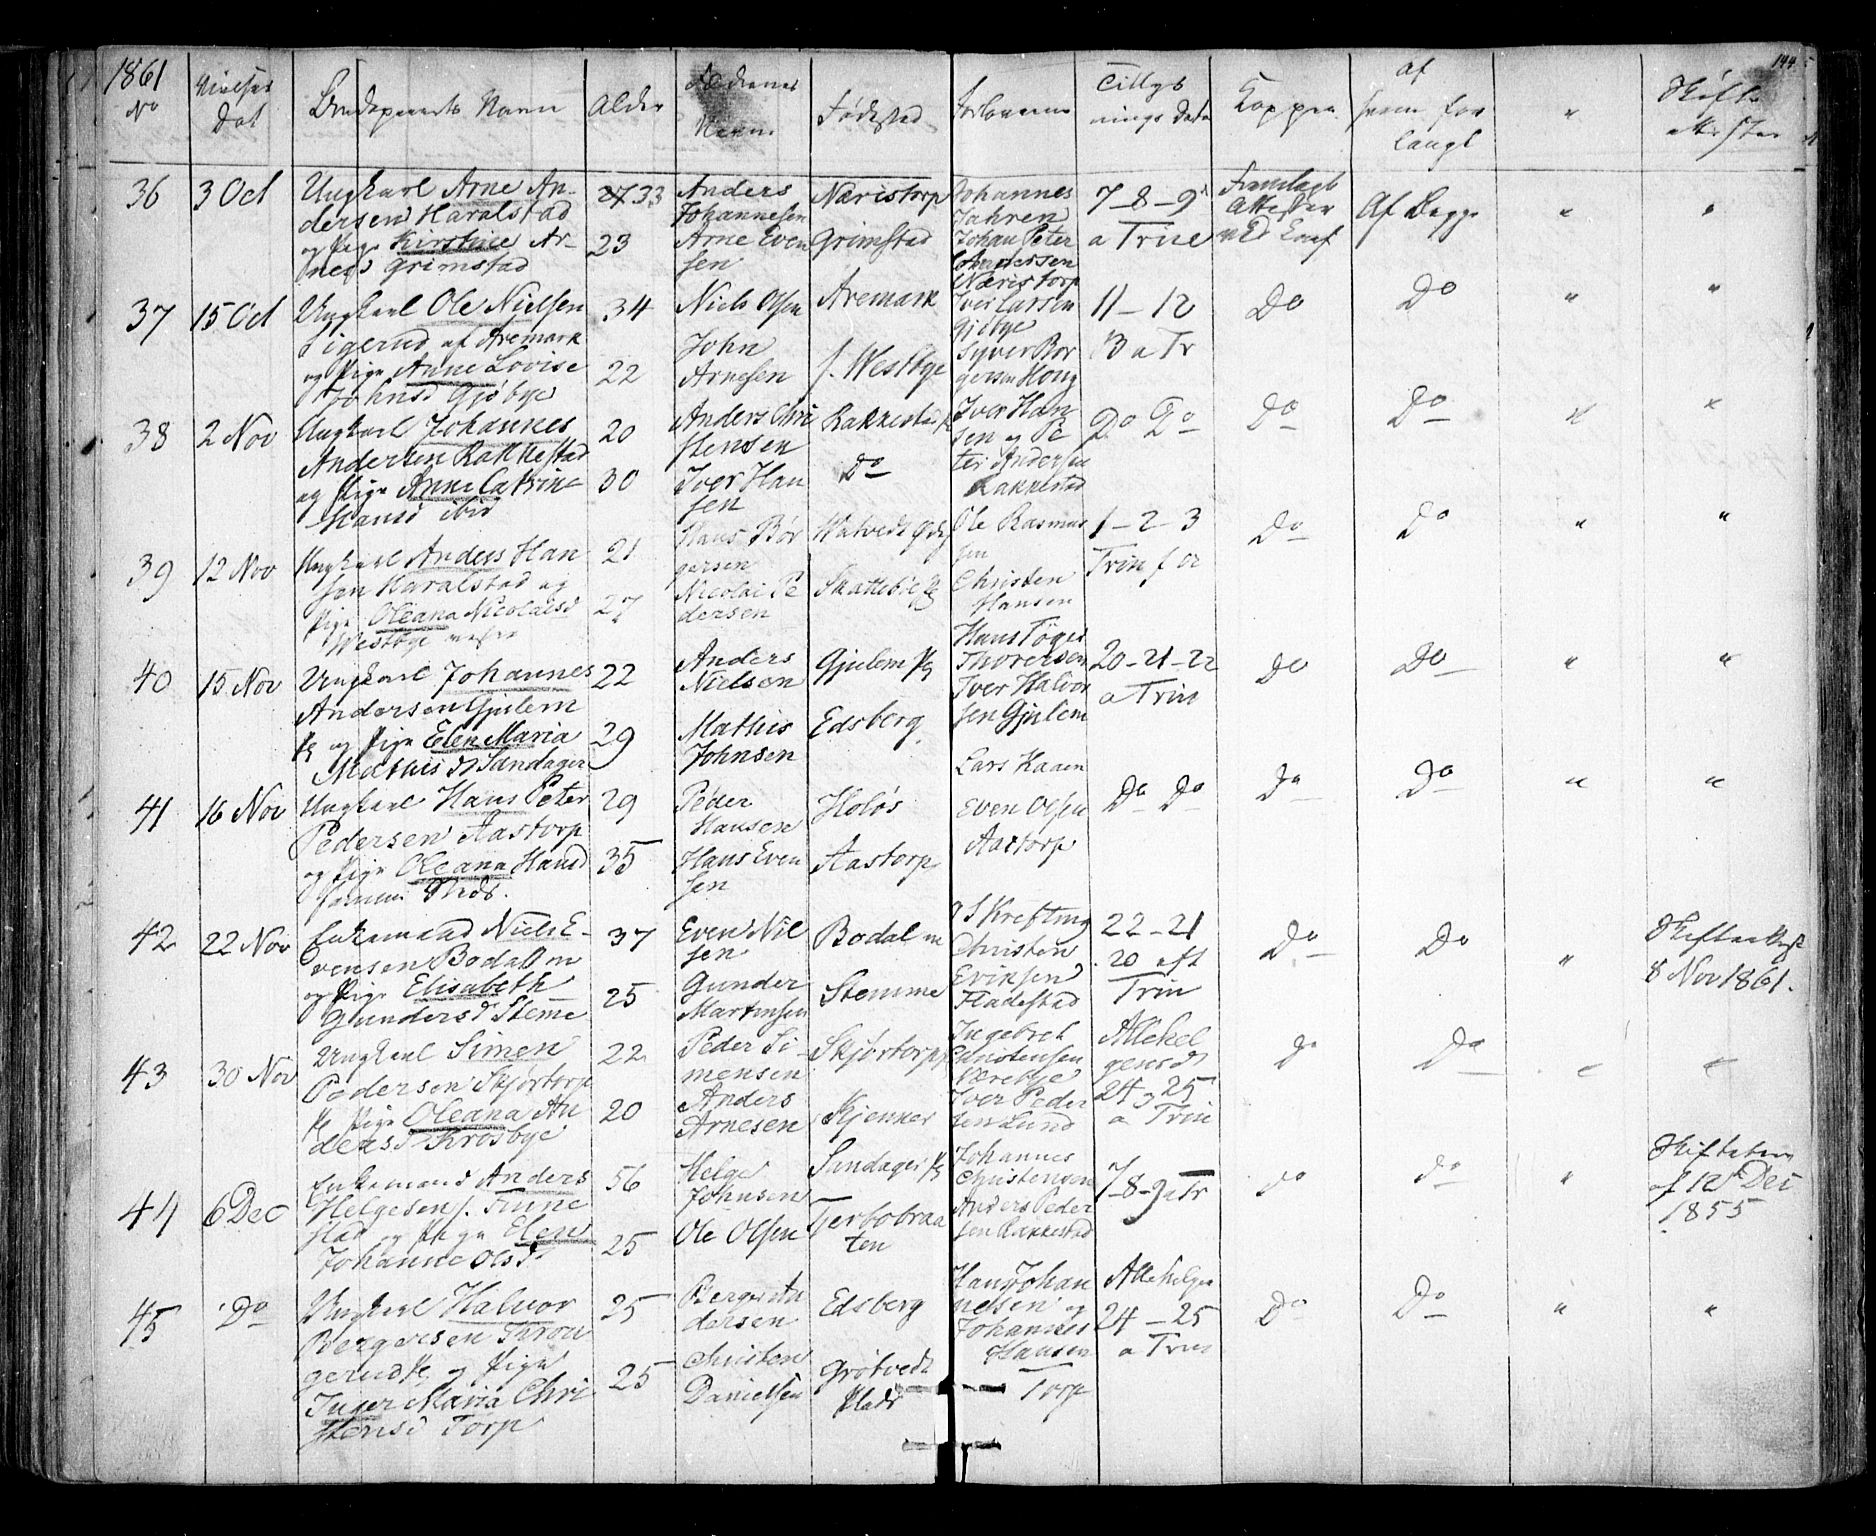 1861
144
No
Vielses Dat
Brudeparrets Navn
Alder
Fædrenes Navn
Fødested
Forloverne
Tillysnings Dato
Koppen
af hvem forlangt
"
Skifte attester
36
3 Oct
Ungkarl Arne An-
dersen Haralstad
og Pige Kirstine Ar-
nesd Grimstad
33
23
Anders
Johannesen
Arne Even
sen
Næristorp
Grimstad
Johannes
Jahren
Johan Peter
Andersen
Næristorp
7-8-9
a Trine
Fremlagt
Attester
Af Begge
"
"
37
15 Oct
Ungkarl Ole Nielsen
Sigerud af Aremark
og Pige Anne Lovise
Johnsd Gjøbye
34
22
Niels Olsen
John
Arnesen
Aremark
f. Westbye
Iver Larsen
Gjøbye
Syver Bor
gersen Houg
11-12
13 a Tr
Do
Do
"
"
38
2 Nov
Ungkarl Johannes
Andersen Rakkestad
og Pige Anne Catrine
Hansd ibid
20
30
Anders Chri
stensen
Iver Han
sen
Rakkestad
Do
Iver Han
sen og Pe
ter Andersen
Rakkestad
Do Do
Do
Do
"
"
39
12 Nov
Ungkarl Anders Han
sen Haralstad og
Pige Oleana Nicolaisd
Westbye
21
27
Hans Bør
gersen
Nicolai Pe
dersen
Watvedt
Skattebøl
Ole Rasmus
sen
Christen
Hansen
1-2-3
Trin
Do
Do
"
"
40
15 Nov
Ungkarl Johannes
Andersen Gjulem
og Pige Elen Maria
Mathisd Sandager
22
29
Anders
Nielsen
Mathis
Johnsen
Gjulem
Edsberg
Hans Tøger
Thoresen
Iver Halvor
sen Gjulem
20-21-22
a Trin
Do
Do
"
"
41
16 Nov
Ungkarl Hans Peter
Pedersen Aastorp
og Pige Oleana Hansd
sammesteds.
29
35
Peder
Hansen
Hans Even
sen
Holøs
Aastorp
Lars Kaaen
Even Olsen
Aastorp
Do Do
Do
Do
"
"
42
22 Nov
Enkemand Niels E-
vensen Bodal m
og Pige Elisabeth
Gundersd Steme
37
25
Even Niel
sen
Gunder
Martinsen
Bodal m
Stemme
Krefting
Christen
Eriksen
Fladestad
22-21
20 eft
Trin
Do
Do
"
Skifteattest
8 Nov 1861.
43
30 Nov
Ungkarl Simen
Pedersen Skjørtorp
Pige Oleana An
dersd Krosbye
22
20
Peder Si-
mensen
Anders
Arnesen
Skjørtorp
Kjenner
Ingebret
Christensen
Værebye
Iver Peder
sen Lund
Allehel
gensd
24 25
a Trin
Do
Do
"
"
44
6 Dec
Enkemand Anders
Helgesen f. Finne
stad og Pige Elen
Johanne Olsd
56
25
Helge
Johnsen
Ole Olsen
Sandager
Tjerbobraa
ten
Johannes
Christensen
Anders Peder
sen Rakkestad
7-8-9 a Tr
Do
Do
"
Skiftebrev
af 12 Dec
1855
45
Do
Ungkarl Halvor
Bergersen Tron
gerud og Pige
Inger Maria Chri
stensd Torp
25
25
Berger An
dersen
Christen
Danielsen
Edsberg
Grøtvedt
Plads
Hans Johan
nesen og
Johannes
Hansen
Torp
Allehelgen
24-25
a Trin
Do
Do
"
"